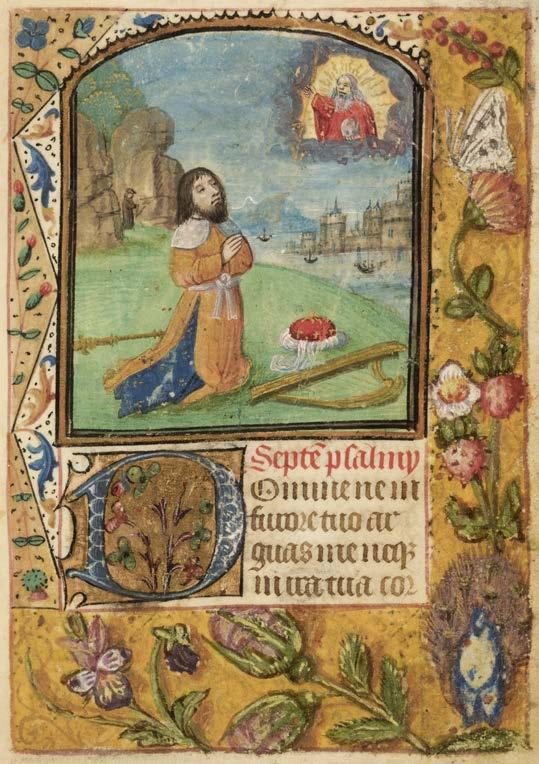 Septē psalmy
Domine ne in
furore tuo ar
guas me neqꝫ
in ira tua cor